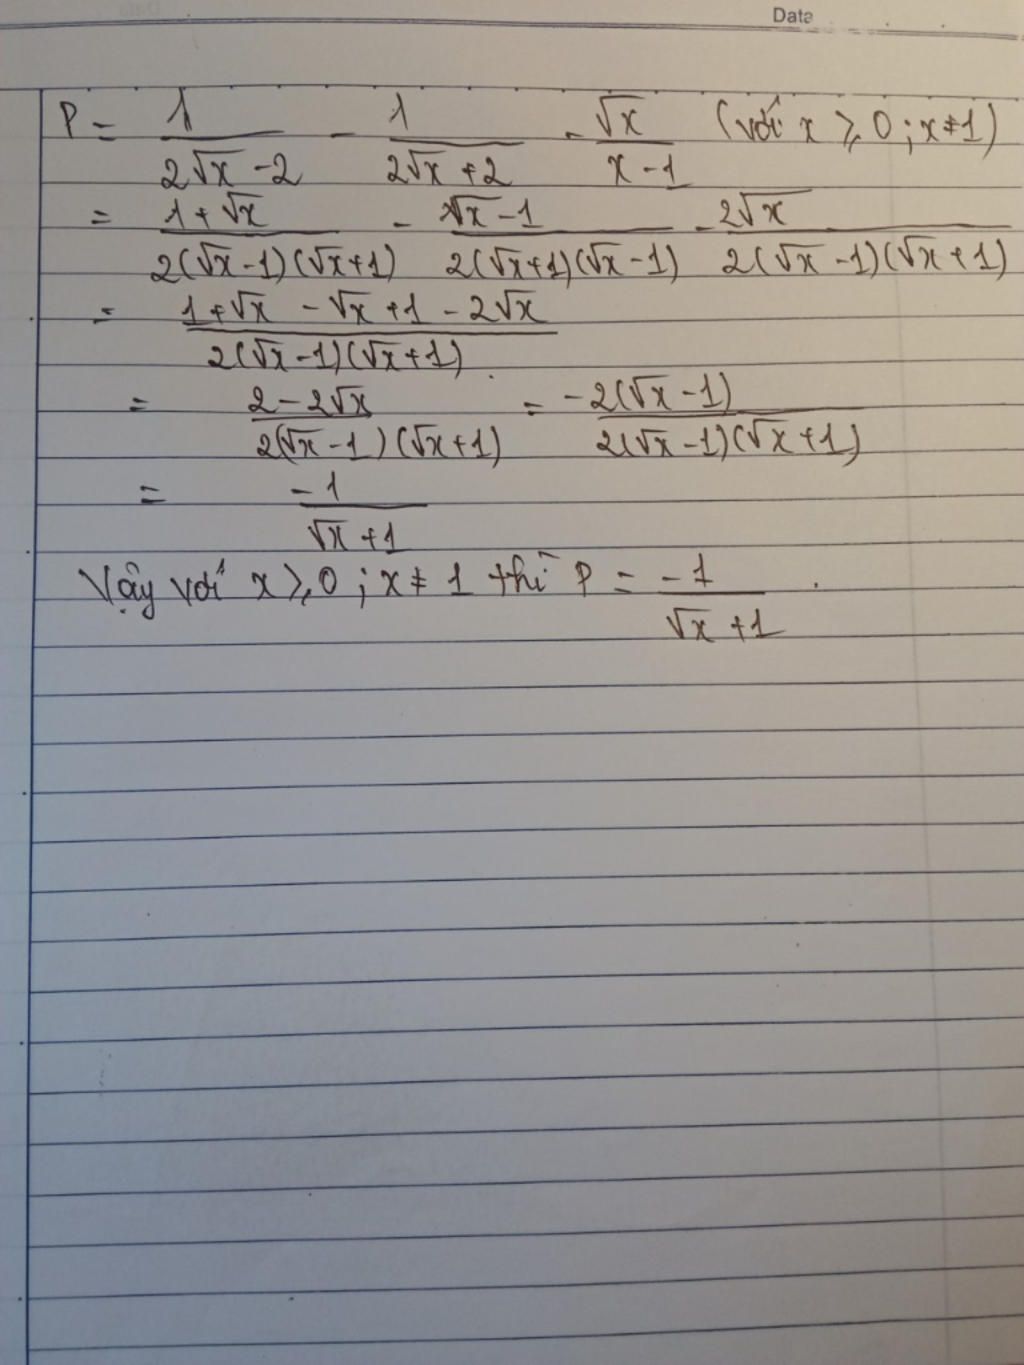 Data
P = 1/(2√x - 2) - 1/(2√x + 2) - √x/(x - 1) (với x ⩾ 0 ; x ≠ 1)
= (1 + √x)/(2(√x - 1)(√x + 1)) - (√x - 1)/(2(√x + 1)(√x - 1)) - 2√x/(2(√x - 1)(√x + 1))
= (1 + √x - √x + 1 - 2√x)/(2(√x - 1)(√x + 1)).
= (2 - 2√x)/(2(√x - 1)(√x + 1)) = -2(√x - 1)/(2(√x - 1)(√x + 1))
= -1/(√x + 1)
Vậy với x ⩾ 0 ; x ≠ 1 thì P = -1/(√x + 1) .